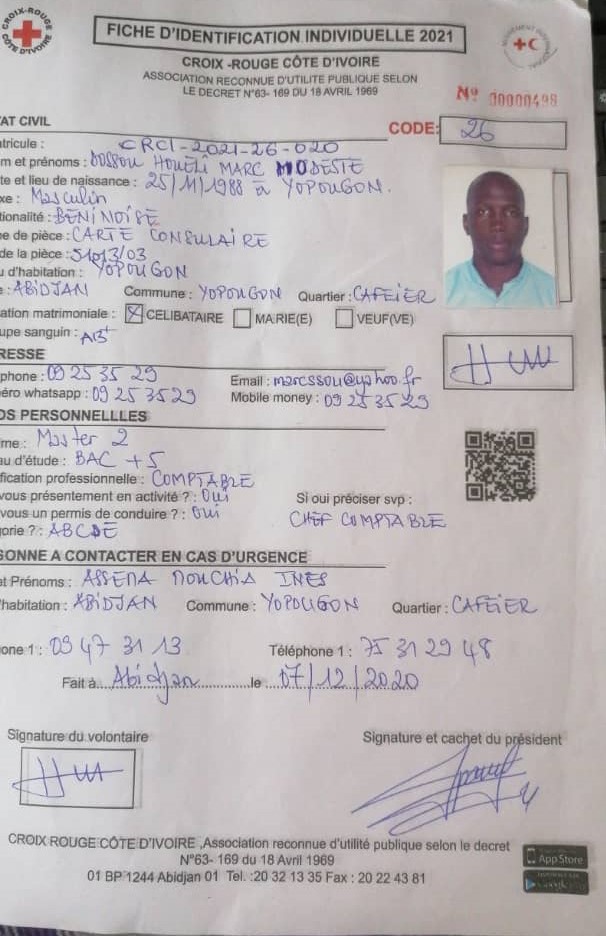 CROIX-ROUGE
CÔTE D'IVOIRE
FICHE D'IDENTIFICATION INDIVIDUELLE 2021
CROIX -ROUGE CÔTE D'IVOIRE
ASSOCIATION RECONNUE D'UTILITE PUBLIQUE SELON
LE DECRET N°63- 169 DU 18 AVRIL 1969
N° 00000498
AT CIVIL
CODE: 26
tricule : CRCI-2021-26-020
m et prénoms : DOSSOU HOUETI MARC MODESTE
te et lieu de naissance : 25/11/1988 à YOPOUGON.
xe : Masculin
tionalité : BENINOISE
e de pièce : CARTE CONSULAIRE
de la pièce : 51013/03
u d'habitation : YOPOUGON
e : ABIDJAN Commune : YOPOUGON Quartier : CAFEIER
ation matrimoniale : CELIBATAIRE MARIE(E) VEUF(VE)
upe sanguin : AB+
RESSE
phone : 09 25 35 29 Email : marcssou@yahoo.fr
éro whatsapp : 09 25 35 29 Mobile money : 09 25 35 29
OS PERSONNELLLES
me : Master 2
au d'étude : BAC +5
fication professionnelle : COMPTABLE
vous présentement en activité ? : Oui Si oui préciser svp :
vous un permis de conduire ? : Oui CHEF COMPTABLE
orie ? : ABCDE
SONNE A CONTACTER EN CAS D'URGENCE
et Prénoms : ASSEMA NOUCHIA INES
'habitation : ABIDJAN Commune : YOPOUGON Quartier : CAFEIER
one 1 : 09 47 31 13 Téléphone 1 : 75 31 29 48
Fait à Abidjan le 07/12/2020
Signature du volontaire Signature et cachet du président
CROIX ROUGE CÔTE D'IVOIRE ,Association reconnue d'utilité publique selon le decret
N°63- 169 du 18 Avril 1969
01 BP 1244 Abidjan 01 Tel. :20 32 13 35 Fax : 20 22 43 81
App Store